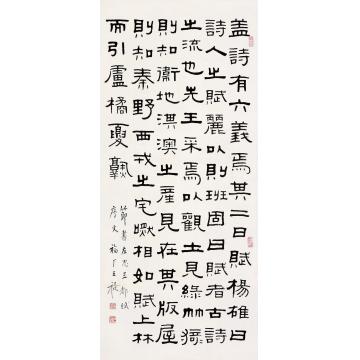 盖詩有六義焉其二曰賦楊雄曰
詩人之賦麗以則班固曰賦者古詩
之流也先王采焉以觀土見綠竹猗
則知衛地淇澳之產見在其版屋
則知秦野西戎之宅然相如賦上林
而引盧橘夏孰
節書左思三都賦
序文 福厂王禔